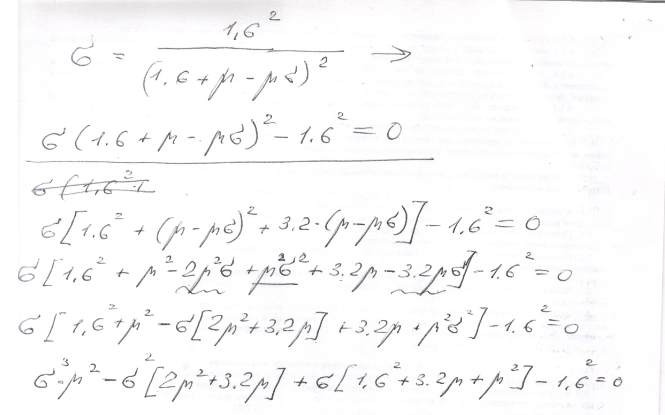 σ = 1,6² / (1.6 + μ - μσ)² →
σ (1.6 + μ - μσ)² - 1.6² = 0
σ (1,6² +
σ [1.6² + (μ - μσ)² + 3.2·(μ - μσ)] - 1.6² = 0
σ [1,6² + μ² - 2μ²σ + μ²σ² + 3.2μ - 3.2μσ] - 1.6² = 0
σ [1,6² + μ² - σ[2μ² + 3,2μ] + 3.2μ + μ²σ²] - 1.6² = 0
σ³·μ² - σ² [2μ² + 3.2μ] + σ [1,6² + 3.2μ + μ²] - 1,6² = 0